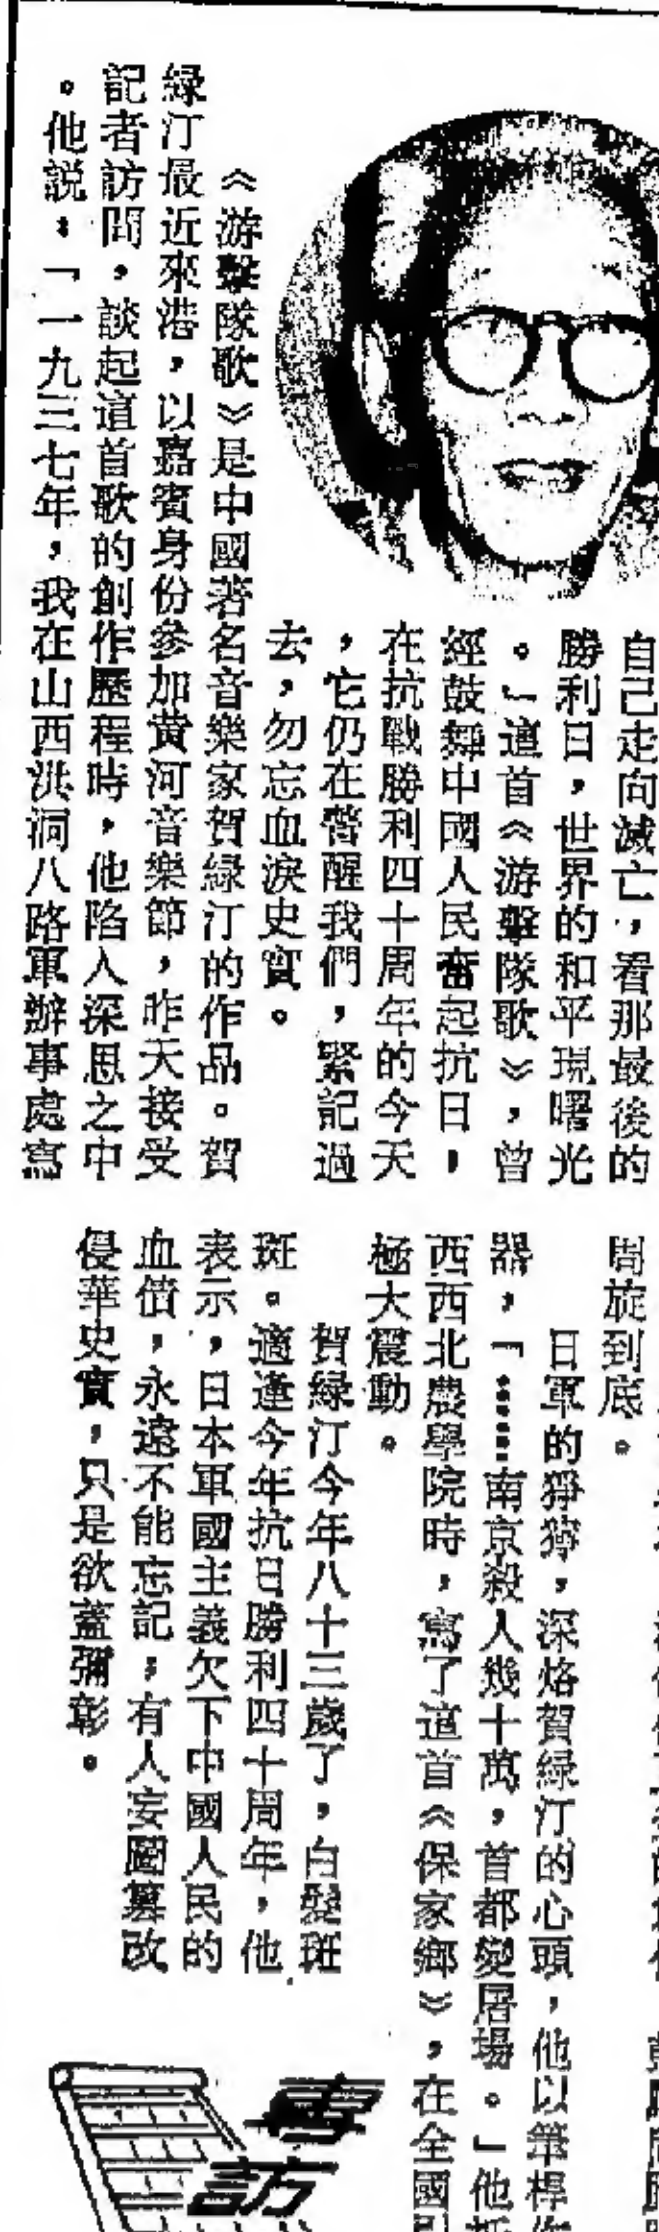 自己走向滅亡，看那最後的
勝利日，世界的和平現曙光
。」這首《游擊隊歌》，曾
經鼓舞中國人民奮起抗日，
在抗戰勝利四十周年的今天
，它仍在警醒我們，緊記過
去，勿忘血淚史實。
《游擊隊歌》是中國著名音樂家賀綠汀的作品。賀
綠汀最近來港，以嘉賓身份參加黄河音樂節，昨天接受
記者訪問，談起這首歌的創作歷程時，他陷入深思之中
。他説：「一九三七年，我在山西洪洞八路軍辦事處寫
周旋到底。
日軍的猙獰，深烙賀綠汀的心頭，他以筆桿
器，「……南京殺人幾十萬，首都變屠場。」他
西西北農學院時，寫了這首《保家鄉》，在全國
極大震動。
賀綠汀今年八十三歲了，白髮斑
斑。適逢今年抗日勝利四十周年，他
表示，日本軍國主義欠下中國人民的
血債，永遠不能忘記，有人妄圖篡改
侵華史實，只是欲蓋彌彰。
專訪